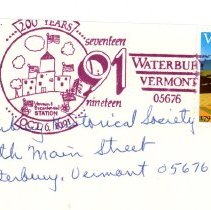 200 YEARS
seventeen
91
nineteen
Vermont
Bicentennial
STATION
OCT. 6, 1991
WATERBUR
VERMONT
05676
Historical Society
th Main Street
terbury, Vermont 05676